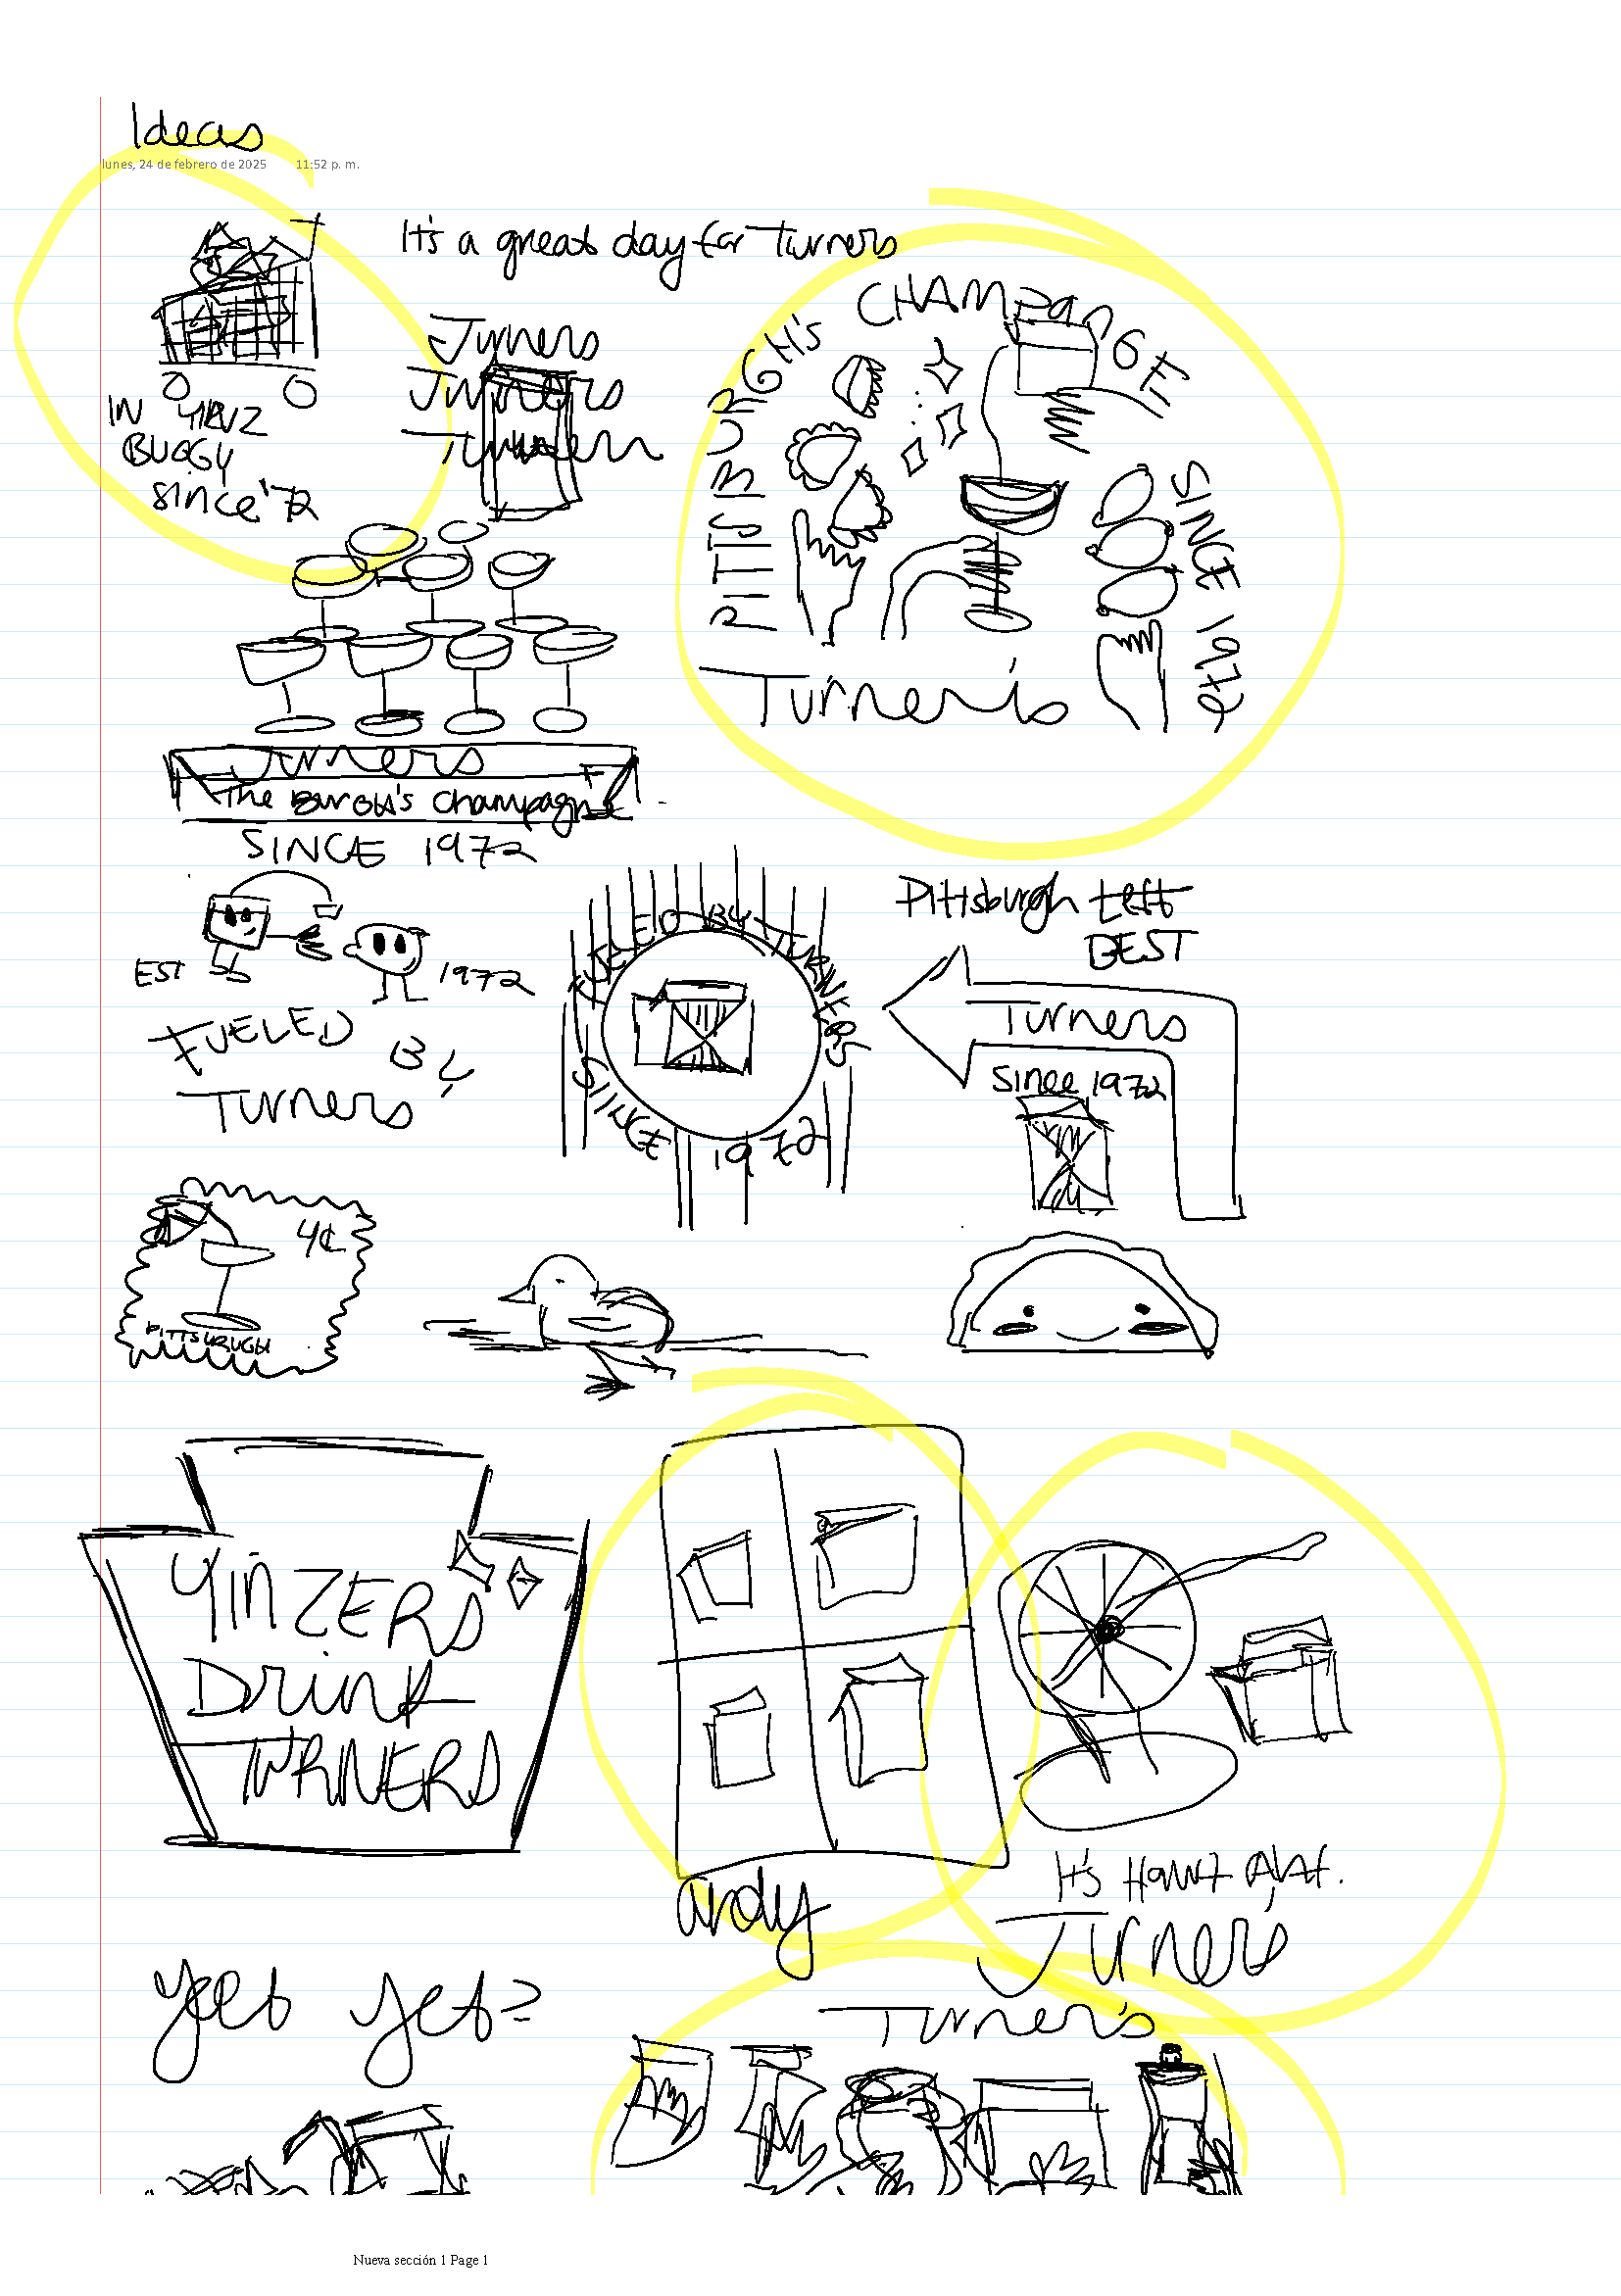 Ideas
lunes, 24 de febrero de 2025 11:52 p. m.
It's a great day for Turners
IN
BUGGY
since '72
Turners
Turners
Turners
PITTSBURGH'S CHAMPaNGE
SINCE 1972
Turner's
Turners
The BurGH's champagne
SINCE 1972
EST 1972
FUELED BY
Turners
FUELED BY TURNERS
SINCE 1972
Pittsburgh Left
BEST
Turners
Since 1972
4¢
PITTSBRUGH
YINZERS
Drink
TURNERS
andy
It's
Turners
yet yet?
Turner's
Nueva sección 1 Page 1